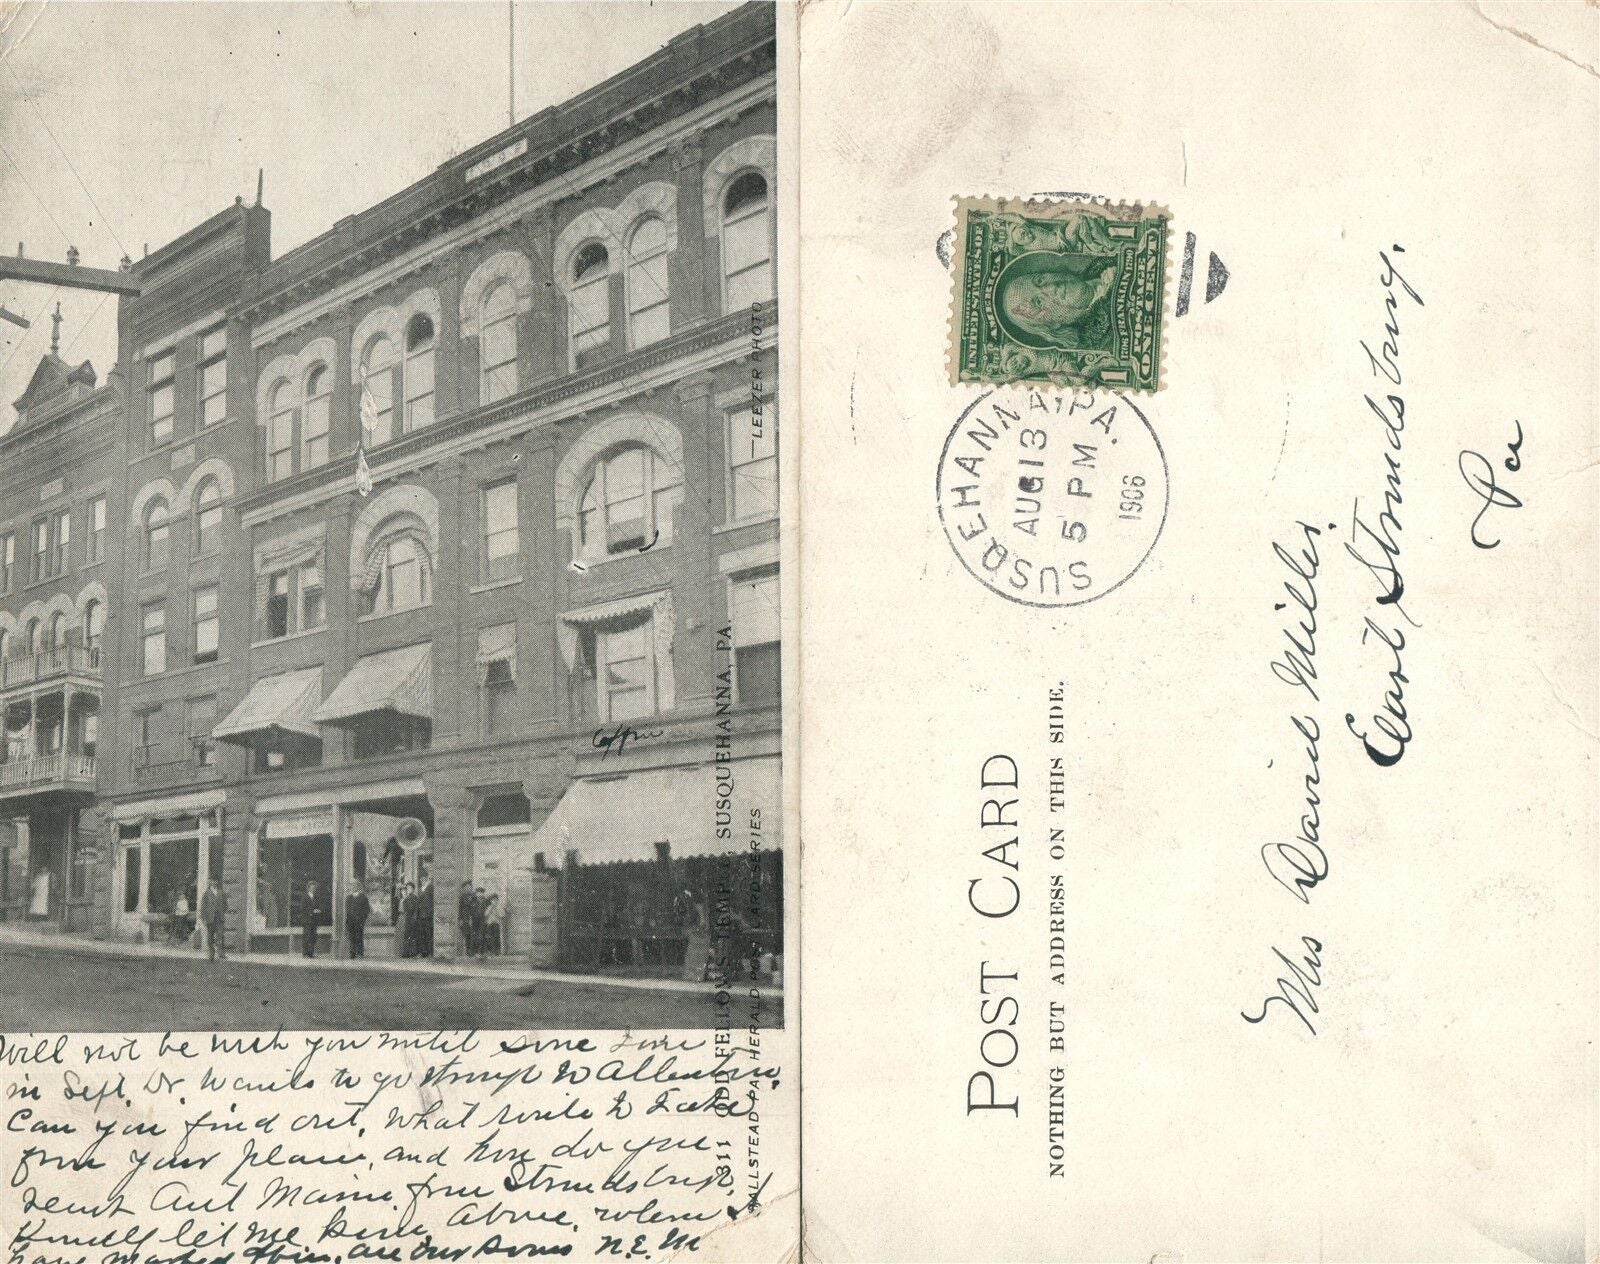 —LEEZER PHOTO
311 ODD FELLOWS TEMPLE, SUSQUEHANNA, PA.
HALLSTEAD PA. HERALD POST CARD SERIES
Office
Will not be with you until some time
in Sept. Dr. wants to go through to Allentown.
Can you find out, what route to take
from your place, and how do you
reach from Stroudsburg.
Kindly let me know. Above, where I
have marked office, are our rooms N.E.M
UNITED STATES OF
AMERICA
1706 FRANKLIN 1790
POSTAGE
ONE CENT
1 1
SUSQEHANNA, PA.
AUG 13
5 PM
1906
POST CARD
NOTHING BUT ADDRESS ON THIS SIDE.
Mrs David Miller.
East Stroudsburg.
Pa